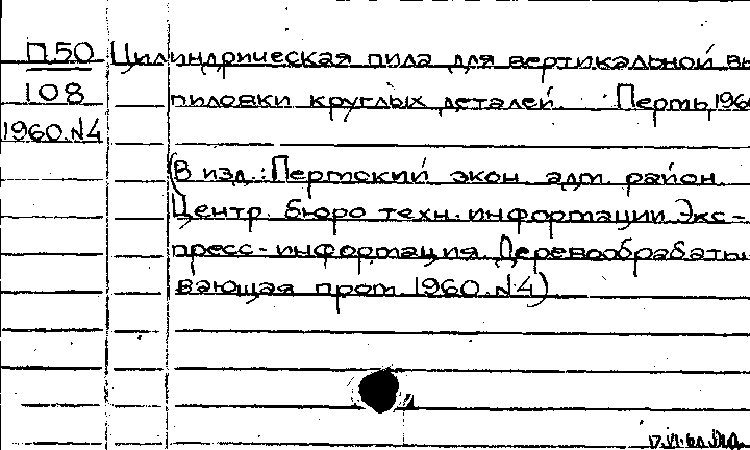 П50 Цилиндрическая пила для вертикальной вы
108 пиловки круглых деталей. Пермь, 196
1960.N4
(В изд.: Пермский экон. адм. район.
Центр. бюро техн. информации. Экс-
пресс-информация. Деревообрабаты
вающая пром. 1960. N4)